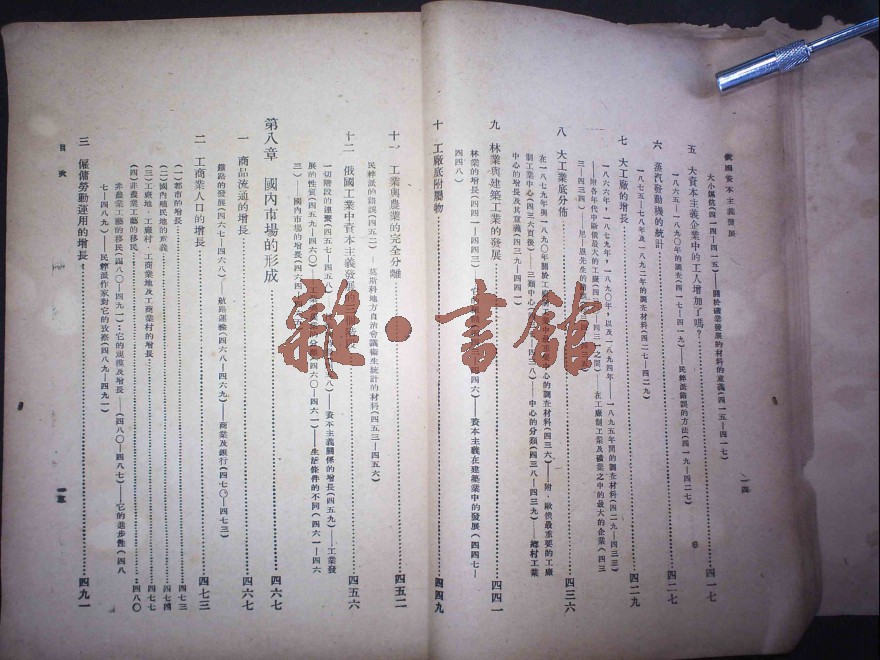 俄國資本主義發展
一四
大小爐坑(四一四—四一五)——關於礦業發展的材料的意義(四一五—四一七)
五 大資本主義企業中的工人增加了嗎?……四一七
一八六五,一八九〇年的調查(四一七—四一九)——民粹派錯誤的方法(四一九—四二七)
六 蒸汽發動機的統計……四二七
一八七五—七八年及一八九二年的調查材料(四二七—四二九)
七 大工廠的增長……四二九
一八六六年,一八七九年,一八九〇年,以及一八九四年——一八九五年間的調查材料(四二九—四三三)
——附各年代中歐俄最大的工廠(四三一之間)——在工廠制工業及礦業之中的最大的企業(四三
八 大工業底分佈……四三六
在一八七九年與一八九〇年關於工心的調查材料(四三六)——附,歐俄最重要的工廠
制工業中心(四三六頁後)——三類中心八)——中心的分類(四三八—四三九)——鄉村工業
中心的增長及其意義(四三九—四四一)
九 林業與建築工業的發展……四四一
林業的增長(四四一—四四三)四六)——資本主義在建築業中的發展(四四七—
四四八)
十 工廠底附屬物……四四九
十一 工業與農業的完全分離……四五二
民粹派的錯誤(四五二)——莫斯科地方自治會議衛生統計的材料(四五三—四五六)
十二 俄國工業中資本主義發展的三階段……四五六
一切階段的連繫(四五七—四五八)——資本主義關係的增長(四五九)——工業發
展的性質(四五九—四六〇)——工六〇—四六一)——生活條件的不同(四六一—四六
三)——國內市場的增長(四六四—四六五)
第八章 國內市場的形成……四六七
一 商品流通的增長……四六七
鐵路的發展(四六七—四六八)——航路運輸(四六八—四六九)——商業及銀行(四七〇—四七三)
二 工商業人口的增長……四七三
(一)都市的增長……四七三
(二)國內殖民地的意義……四七四
(三)工廠地,工廠村,工商業地及工商業村的增長……四七七
(四)非農業工藝的移民……四八〇
非農業工藝的移民(四八〇—四九一):它的規模及增長——(四八〇—四八七)——它的進步性(四八
七—四八九)——民粹派作家對它的攷察(四八九—四九一)
三 僱傭勞動運用的增長……四九一
目次
一五
雜·書館